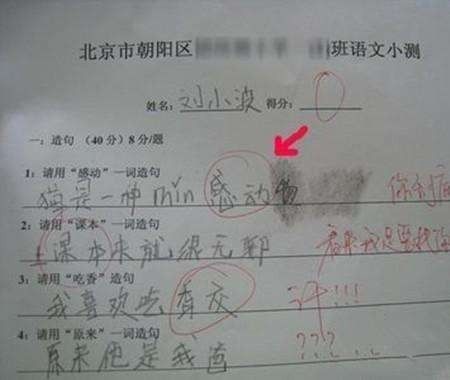 北京市朝阳区 班语文小测
姓名：刘小波 得分：0
一：造句 （40分）8分/题
1：请用“感动”一词造句
猫是一种 min 感动物
2：请用“课本”一词造句
课本来就很无聊
看来我是要找你
3：请用“吃香”造句
我喜欢吃香交 汗!!!
4：请用“原来”一词造句
原来他是我爸 ???